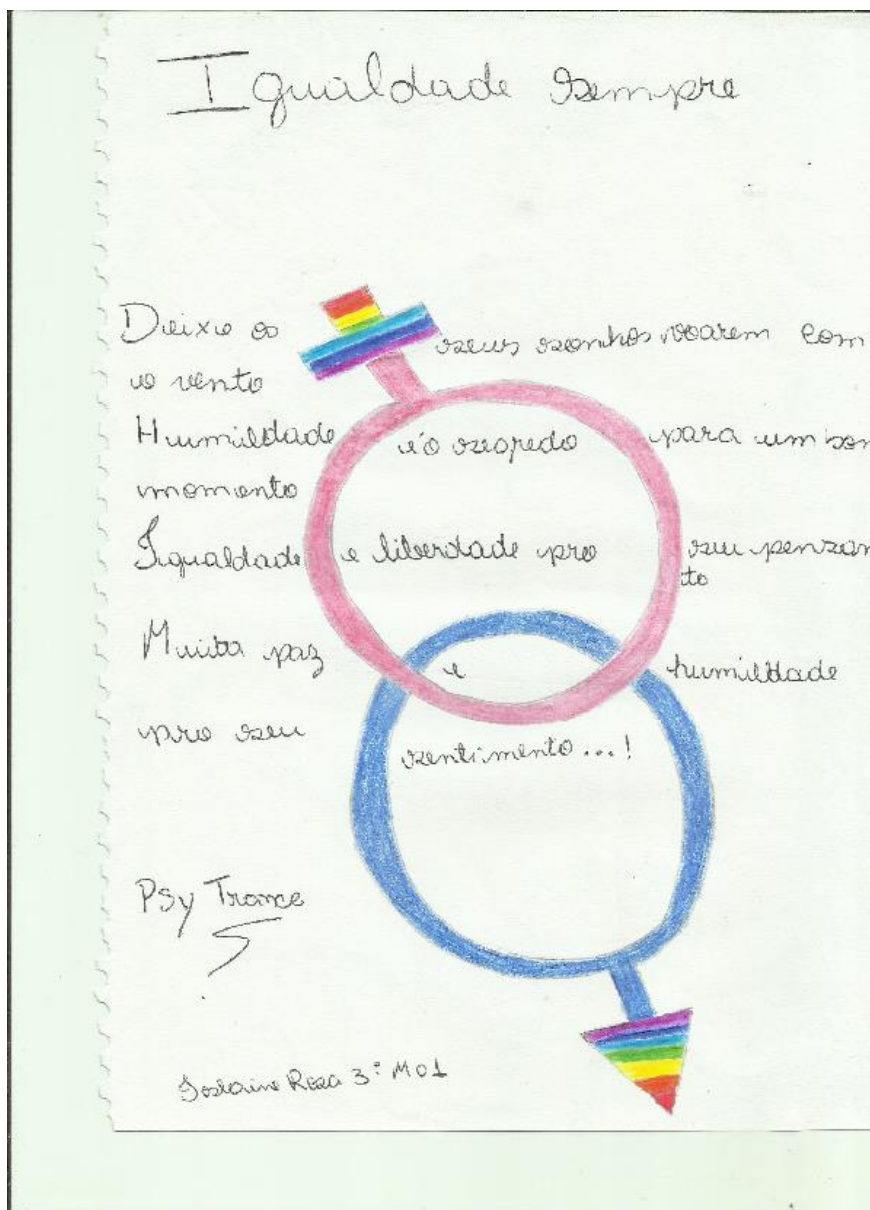 Igualdade sempre
Deixe os seus sonhos voarem com
o vento
Humildade é o segredo para um bom
momento
Igualdade e liberdade pro seu penzam
to
Muita paz e humildade
pro seu sentimento...!
Psy Trance
Joslaine Roza 3º M01